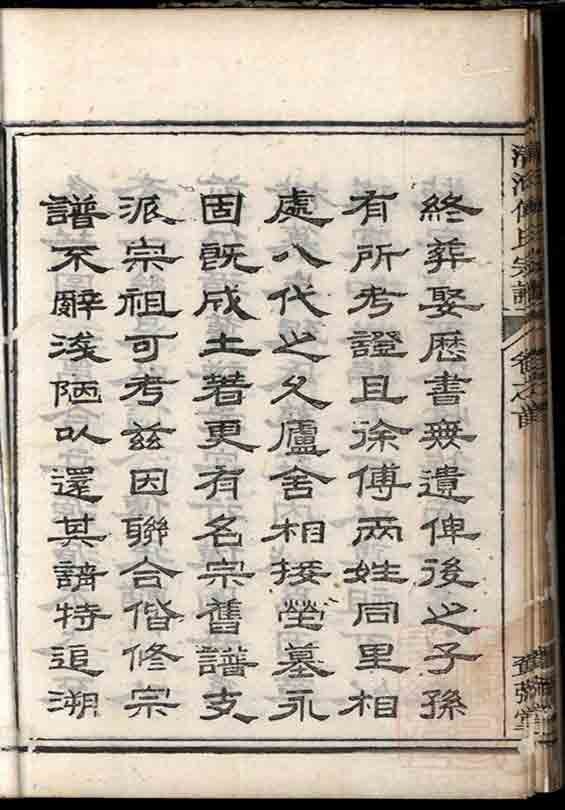 終葬娶歷書無遺俾後之子孫
有所考證且徐傅兩姓同里相
處八代之久廬舍相接塋墓永
固既成土著更有名宗舊譜支
派宗祖可考茲因聯合偕修宗
譜不辭淺陋以還其請特追溯
清河傅氏宗譜
卷之首